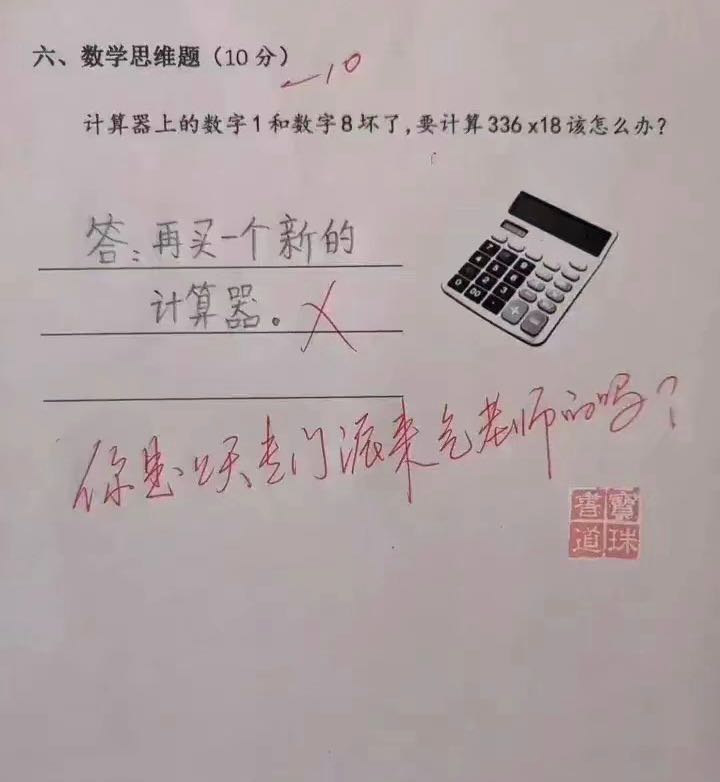 六、数学思维题（10分）
-10
计算器上的数字1和数字8坏了,要计算336x18该怎么办?
答:再买一个新的
计算器。
你是上天专门派来气老师的吗?
寶珠
書道